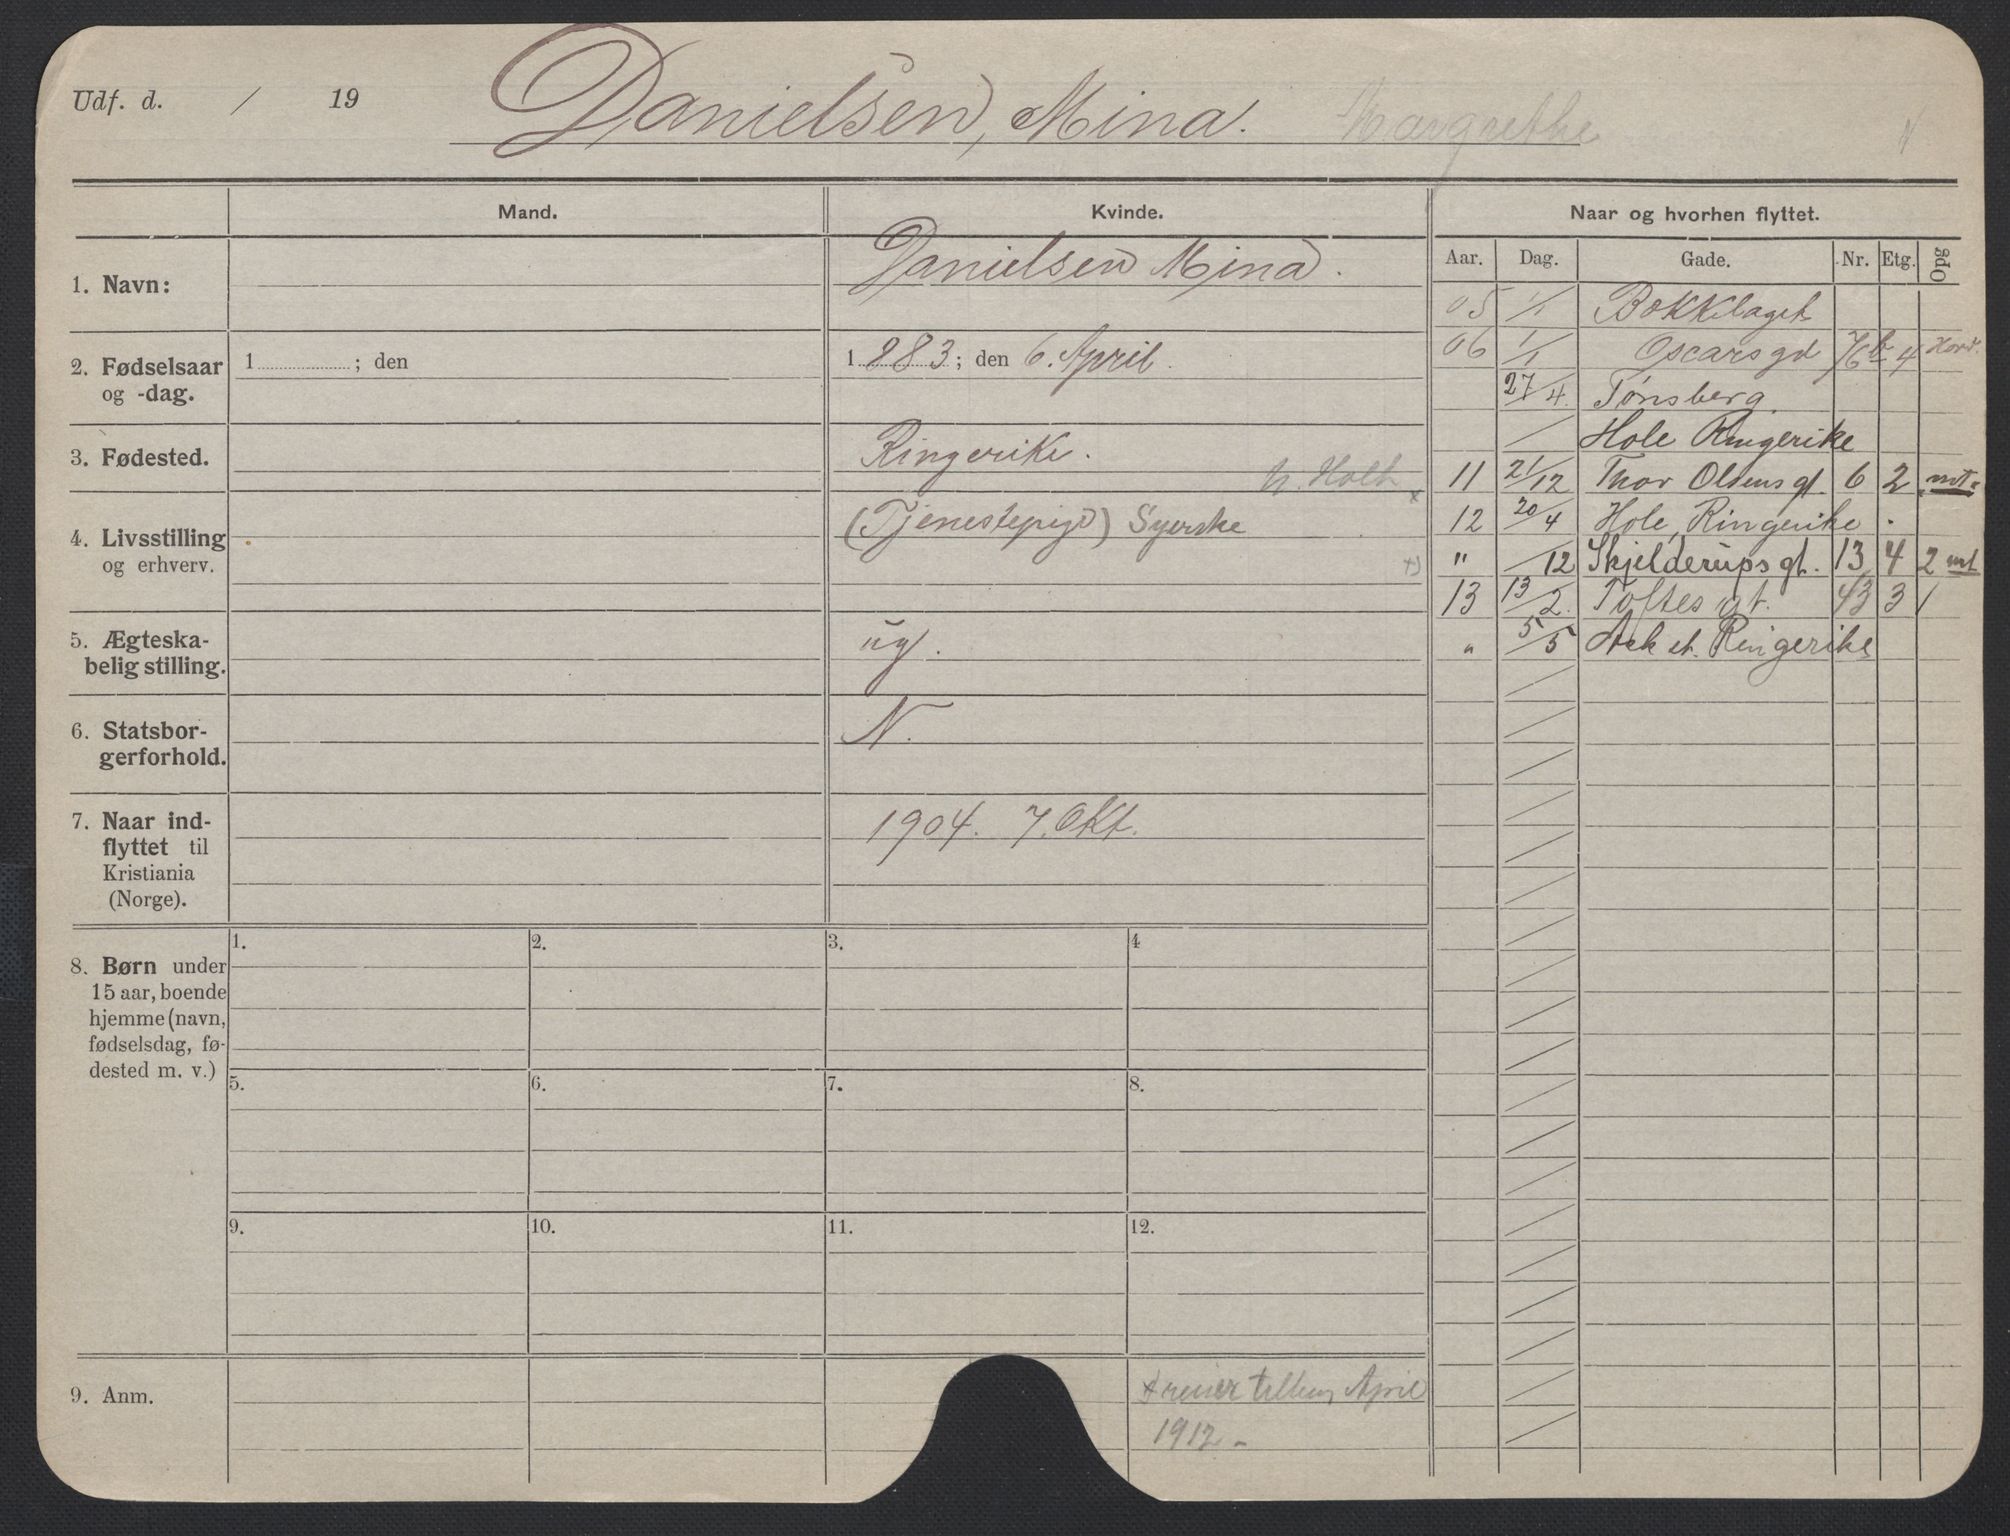 Udf. d. / 19 Danielsen, Mina. Margrethe
Mand. Kvinde. Naar og hvorhen flyttet.
Aar. Dag. Gade. Nr. Etg. Opg
1. Navn: Danielsen Mina.
2. Fødselsaar og -dag. 1 ; den
1 883; den 6. April.
3. Fødested. Ringerike.
N. Holth
4. Livsstilling og erhverv. (Tjenestepige) Syerske
5. Ægteska-
belig stilling. ug.
6. Statsbor-
gerforhold. N.
7. Naar ind-
flyttet til
Kristiania
(Norge). 1904. 7. Okt.
05 1/1 Bokkelaget
06 1/1 Oscarsgd 76b 4 Hovd.
27/4. Tønsberg.
/ Hole Ringerike
11 21/12 Thor Olsens gt. 6 2
12 20/4 Hole, Ringerike.
" /12 Skjelderups gt. 13 4 2
13 13/2. Toftes gt. 43 3 1
" 5/5 Ask st. Ringerike
8. Børn under
15 aar, boende
hjemme (navn,
fødselsdag, fø-
dested m. v.)
1. 2. 3. 4
5. 6. 7. 8.
9. 10. 11. 12.
9. Anm.
April
1912 -